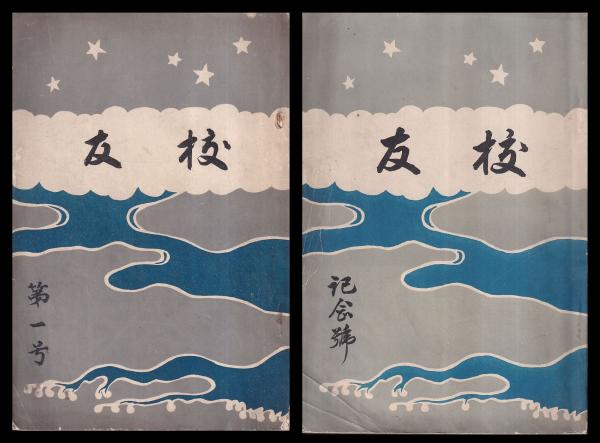 校友
第一号
校友
記念號